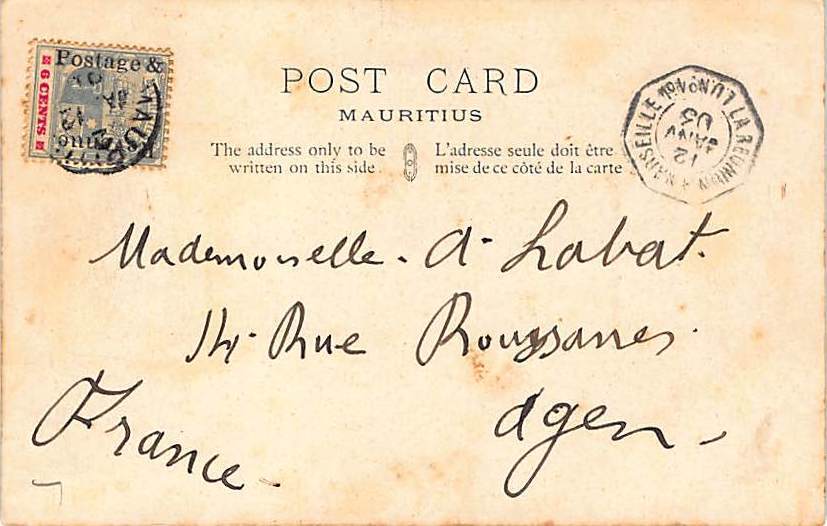 Postage &
6 CENTS
POST CARD
MAURITIUS
The address only to be
written on this side.
L'adresse seule doit être
mise de ce côté de la carte
LA RÉUNION A MARSEILLE
12
JANV
03
Mademoiselle. A. Labat.
14. Rue Roussanes.
Agen.
France.